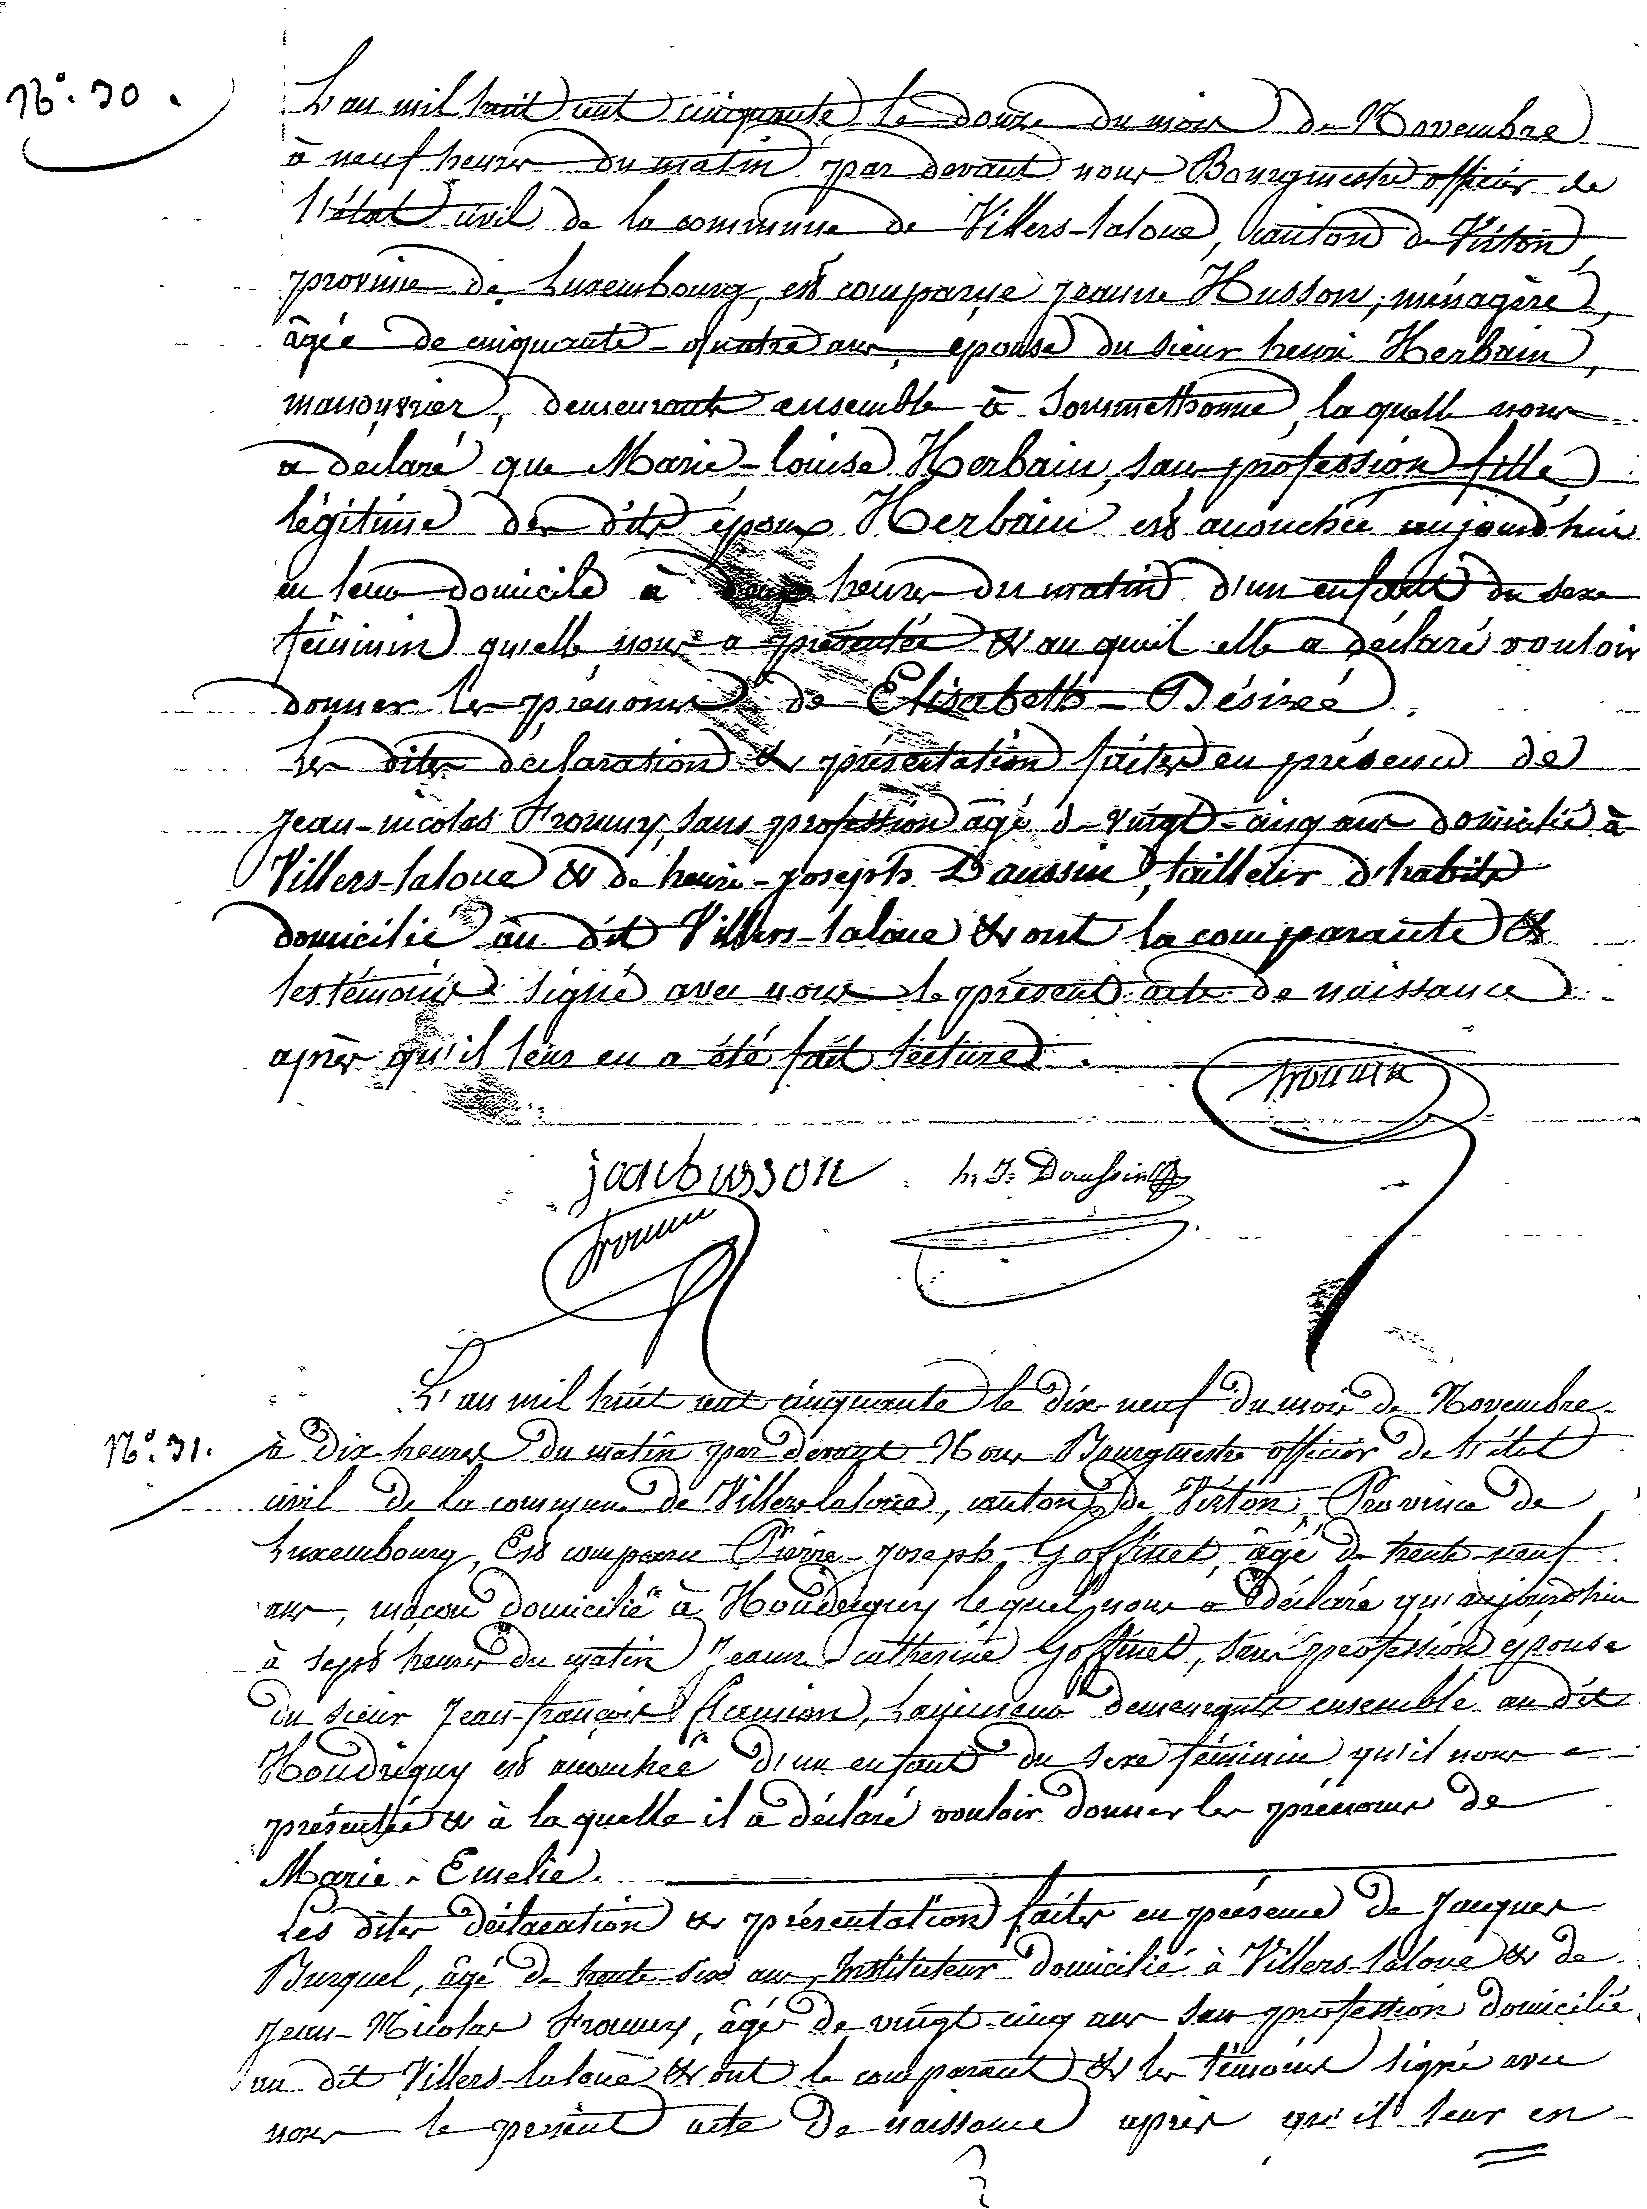 N°. 30.
L'an mil huit cent cinquante le douze du mois de Novembre
à neuf heures du matin par devant nous Bourgmestre officier de
l'état civil de la commune de Villers-laloue, canton de Virton,
province de Luxembourg, est comparue jeanne Husson, ménagère,
âgée de cinquante-quatre ans, épouse du sieur henri Herbain,
manouvrier, demeurants ensemble à Sommethonne, laquelle nous
a déclaré que Marie-louise Herbain, sans profession fille
légitime des dits époux Herbain est accouchée aujourd'hui
en leur domicile à heures du matin d'un enfant du sexe
féminin qu'elle nous a présentée & au quel elle a déclaré vouloir
donner les prénoms de Elisabeth-Désirée.
Les dites déclaration & présentation faites en présence de
jean-nicolas Froumy, sans profession âgé de vingt-cinq ans domicilié à
Villers-laloue & de henri-joseph Daussin, tailleur d'habits
domicilié au dit Villers-laloue & ont la comparante &
les témoins signé avec nous le présent acte de naissance
après qu'il leur en a été fait lecture.
h. J. Daussin
N°. 31.
L'an mil huit cent cinquante le dix-neuf du mois de Novembre
à dix heures du matin par devant Nous Bourgmestre officier de l'état
civil de la commune de Villers-laloue, canton de Virton, Province de
Luxembourg, Est comparu Pierre-joseph Goffinet, âgé de trente-neuf
ans, maçon domicilié à Houdrigny lequel nous a déclaré qu'aujourd'hui
à sept heures du matin Jeanne-catherine Goffinet, sans profession épouse
du sieur Jean-françois demeurants ensemble au dit
Houdrigny est accouchée d'un enfant du sexe féminin qu'il nous a
présentée & à la quelle il a déclaré vouloir donner les prénoms de
Marie-Emelie.
Les dites déclaration & présentation faites en présence de Jacques
Burquel, âgé de trente six ans, Instituteur domicilié à Villers-laloue & de
Jean-Nicolas Froumy, âgé de vingt-cinq ans sans profession domicilié
au dit Villers-laloue & ont le comparant & les témoins signé avec
nous le présent acte de naissance après qu'il leur en